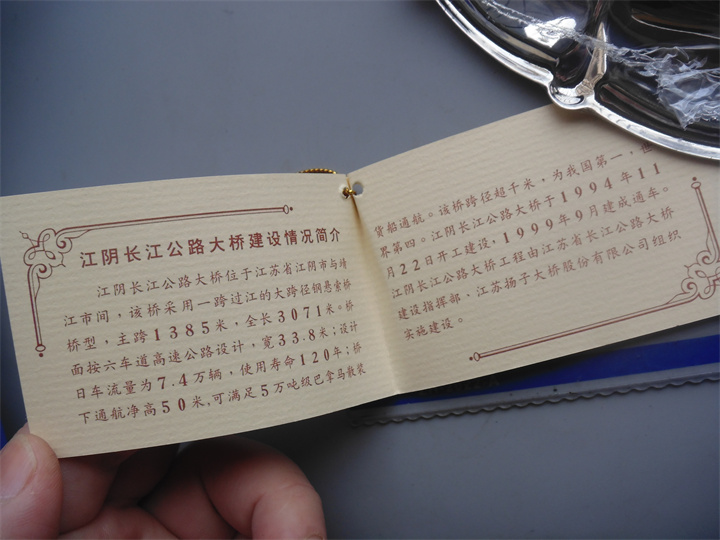 江阴长江公路大桥建设情况简介
江阴长江公路大桥位于江苏省江阴市与靖
江市间，该桥采用一跨过江的大跨径钢悬索桥
桥型，主跨1385米，全长3071米。桥
面按六车道高速公路设计，宽33.8米；设计
日车流量为7.4万辆，使用寿命120年；桥
下通航净高50米，可满足5万吨级巴拿马散装
货船通航。该桥跨径超千米，为我国第一，世
界第四。江阴长江公路大桥于1994年11
月22日开工建设，1999年9月建成通车。
江阴长江公路大桥工程由江苏省长江公路大桥
建设指挥部·江苏扬子大桥股份有限公司组织
实施建设。